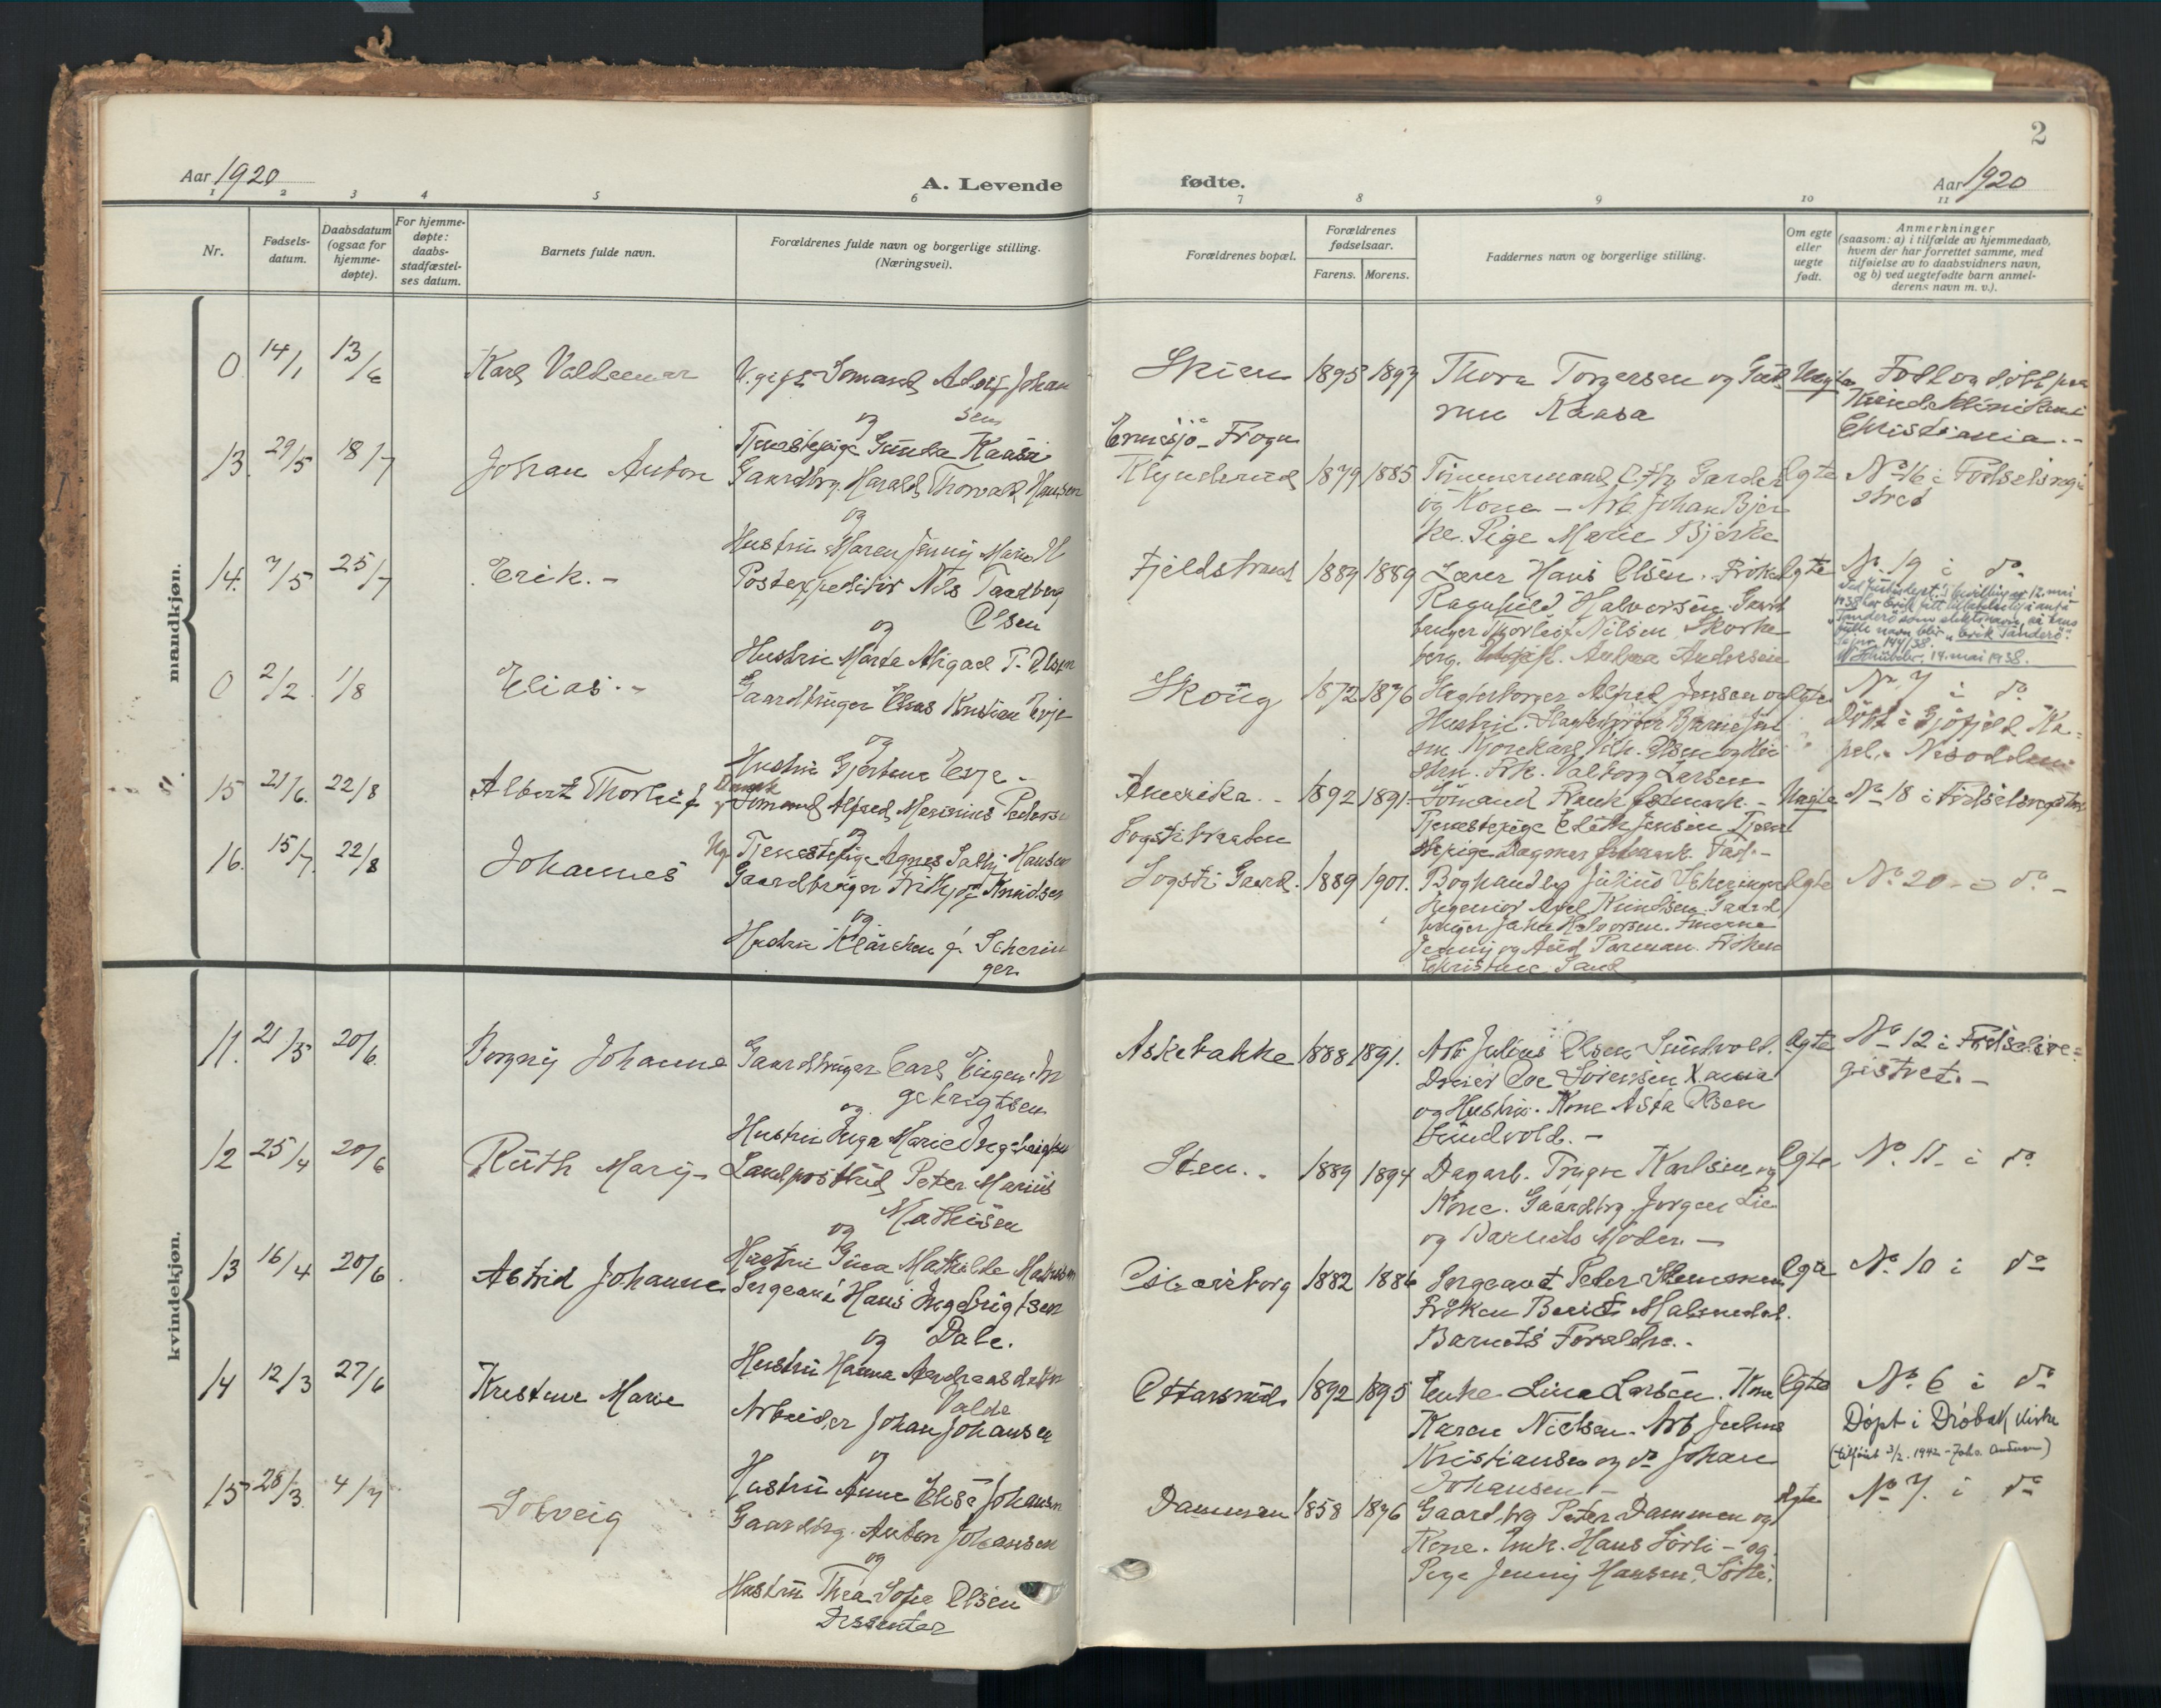 2
Aar 1920
A. Levende fødte.
Aar 1920
1 2 3 4 5 6 7 8 9 10 11
Nr.
Fødsels-
datum.
Daabsdatum
(ogsaa for
hjemme-
døpte).
For hjemme-
døpte:
daabs-
stadfæstel-
ses datum.
Barnets fulde navn.
Forældrenes fulde navn og borgerlige stilling.
(Næringsvei).
Forældrenes bopæl.
Forældrenes
fødselsaar.
Farens. Morens.
Faddernes navn og borgerlige stilling.
Om egte
eller
uegte
født.
Anmerkninger
(saasom: a) i tilfælde av hjemmedaab,
hvem der har forrettet samme, med
tilføielse av to daabsvidners navn,
og b) ved uegtefødte barn anmel-
derens navn m. v.).
mandkjøn.
0 14/1 13/6 Karl Valdemar
Ugift Sømand Adolf Johan
sen
og
Tjenestepige Gunda Kaasa
Skien 1895 1897
Thora Torgersen og
Kaasa
Uegte
Født og døbt paa
Kvindeklinikken i
Christiania. -
13. 29/5 18/7 Johan Anton
Gaardbrg. Harald Thorvald Hansen
og
Hustru Maren Jenny Marie H
Frogn
Klynderud 1879 1885
Tømmermand Garder
og Kone - Arb. Johan Bjer
ke. Pige Marie Bjerke
Egte
No 16 i Fødselsregi
stret
14. 7/5 25/7 Erik. -
Postexpeditør Nils Taadberg
Olsen
og
Hustru Marta Abigael T. Olsen
Fjeldstrand 1889 1889
Lærer Hans Olsen. Frøken
Ragnhild Halvorsen. Gaard
bruger Thorleif Nilsen Skorke
berg. Anna Andersen
Egte
No. 19 i do
bevilling av 12. mai
1938 har Erik fått tillatelse til å anta
"Tanderø" som slektsnavn, så hans
fulle navn blir "Erik Tanderø".
19. mai 1938.
0 2/2 1/8 Elias. -
Gaardbruger Elias Kristian Evje
og
Hustru Gjertine Evje -
Skoug 1872 1876
Slagterborger Alfred Jensen og
Hustru. Slagterborger Bjarne Jen
sen. Olsen og Hu
stru. Frk. Valborg Larsen
Egte
No 7 i do
Døbt i Gjøfjeld Ka-
pel. Nesodden
15 21/6. 22/8 Albert Thorleif
Sømand Alfred Marinius Pedersen
og
Ug. Tjenestepige Agnes Hansen
Amerika. - 1892 1891.
Sogsti
Sømand Frank -
Tjenestepige Edith Jensen Tjene
stepige Dagmar
Uegte
No 18 i Fødselsregistret
16. 15/7. 22/8 Johannes
Gaardbruger Frithjof Knudsen
og
Hustru Klärchen f. Scherin
ger
Sogsti Gaard. 1889 1901.
Boghandler Julius Scheringer
Ingeniør Axel Knudsen. Gaard
bruger Johan Halvorsen. Fruerne
Jenny og Frøken
Christine Sand
Egte
No 20 - i do -
kvindekjøn.
11. 21/5 20/6. Borgny Johanne
Gaardbruger Carl Eugen In
gebrigtsen
og
Hustru Inga Marie Ingebrigtsen
Askebakke 1888 1891.
Arb. Julius Olsen Sundvold.
Dreier Ole Sørensen X.ania
og Hustru. Kone Asta Olsen
Sundvold. -
Egte
No 12 i Fødselsre-
gistret. -
12 25/4 20/6 Ruth Mary -
Landpostbud Peter Marius
Mathisen
og
Hustru Gina Mathilde Mathisen
Sten. - 1889 1894
Dagarb. Trygve Karlsen og
Kone. Gaardbrg. Jørgen Lie
og Barnets Moder. -
Egte
No. 11 - i do
13 16/4 20/6. Astrid Johanne
Sergeant Hans Ingebrigtsen
og Dale.
Hustru Hanna Andreasdatter
Valde
Oscarsborg 1882 1886
Sergeant Peder
Frøken Berit Malmedal.
Barnets Forældre. -
Egte
No. 10 i do
14 12/3 27/6 Kristine Marie
Arbeider Johan Johansen
og
Hustru Anne Elise Johansen
Ottarsrud 1892 1895
Enke Lina Larsen. Kone
Karen Nielsen. Arb. Julius
Kristiansen og do Johan
Johansen -
Egte
No. 6 i do
Døpt i Drøbak kirke
(tilføiet 3/2. 1942 - Johs. )
15 28/3 4/7 Solveig
Gaardbrg. Anton Johansen
og
Hustru Thea Sofie Olsen
Dissenter
Dammen 1858 1876
Gaardbrg Peter Dammen og
Kone. Hans Sørli - og
Pige Jenny Hansen,
Egte
No 7. i do